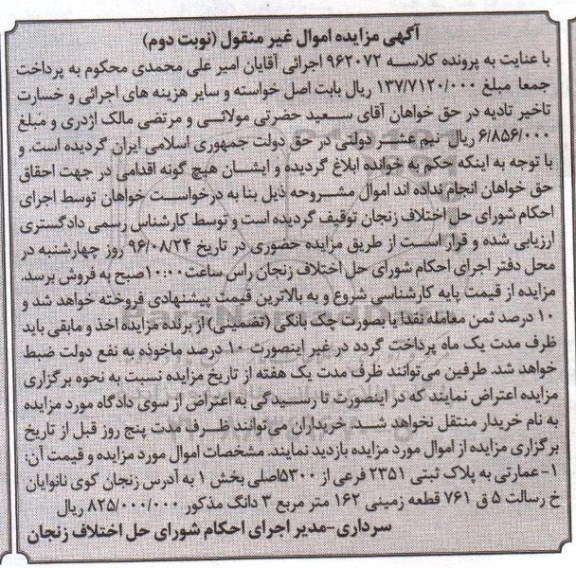 آگهی مزایده اموال غیر منقول (نوبت دوم)
با عنایت به پرونده کلاسه ۹۶۲۰۷۲ اجرائی آقایان امیر علی محمدی محکوم به پرداخت
جمعا مبلغ ۱۳۷/۷۱۲۰/۰۰۰ ریال بابت اصل خواسته و سایر هزینه های اجرائی و خسارت
تاخیر تادیه در حق خواهان آقای سعید حضرتی مولائی و مرتضی مالک اژدری و مبلغ
۶/۸۵۶/۰۰۰ ریال نیم عشر دولتی در حق دولت جمهوری اسلامی ایران گردیده است. و
با توجه به اینکه حکم به خوانده ابلاغ گردیده و ایشان هیچ گونه اقدامی در جهت احقاق
حق خواهان انجام نداده اند اموال مشروحه ذیل بنا به درخواست خواهان توسط اجرای
احکام شورای حل اختلاف زنجان توقیف گردیده است و توسط کارشناس رسمی دادگستری
ارزیابی شده و قرار است از طریق مزایده حضوری در تاریخ ۹۶/۰۸/۲۴ روز چهارشنبه در
محل دفتر اجرای احکام شورای حل اختلاف زنجان راس ساعت ۱۰:۰۰ صبح به فروش برسد.
مزایده از قیمت پایه کارشناسی شروع و به بالاترین قیمت پیشنهادی فروخته خواهد شد و
۱۰ درصد ثمن معامله نقدا یا بصورت چک بانکی (تضمینی) از برنده مزایده اخذ و مابقی باید
ظرف مدت یک ماه پرداخت گردد در غیر اینصورت ۱۰ درصد ماخوذه به نفع دولت ضبط
خواهد شد. طرفین می‌توانند ظرف مدت یک هفته از تاریخ مزایده نسبت به نحوه برگزاری
مزایده اعتراض نمایند که در اینصورت تا رسیدگی به اعتراض از سوی دادگاه مورد مزایده
به نام خریدار منتقل نخواهد شد. خریداران می‌توانند ظرف مدت پنج روز قبل از تاریخ
برگزاری مزایده از اموال مورد مزایده بازدید نمایند. مشخصات اموال مورد مزایده و قیمت آن:
۱- عمارتی به پلاک ثبتی ۲۳۵۱ فرعی از ۵۳۰۰اصلی بخش ۱ به آدرس زنجان کوی نانوایان
خ رسالت ۵ ق ۷۶۱ قطعه زمینی ۱۶۲ متر مربع ۳ دانگ مذکور ۸۲۵/۰۰۰/۰۰۰ ریال
سرداری-مدیر اجرای احکام شورای حل اختلاف زنجان